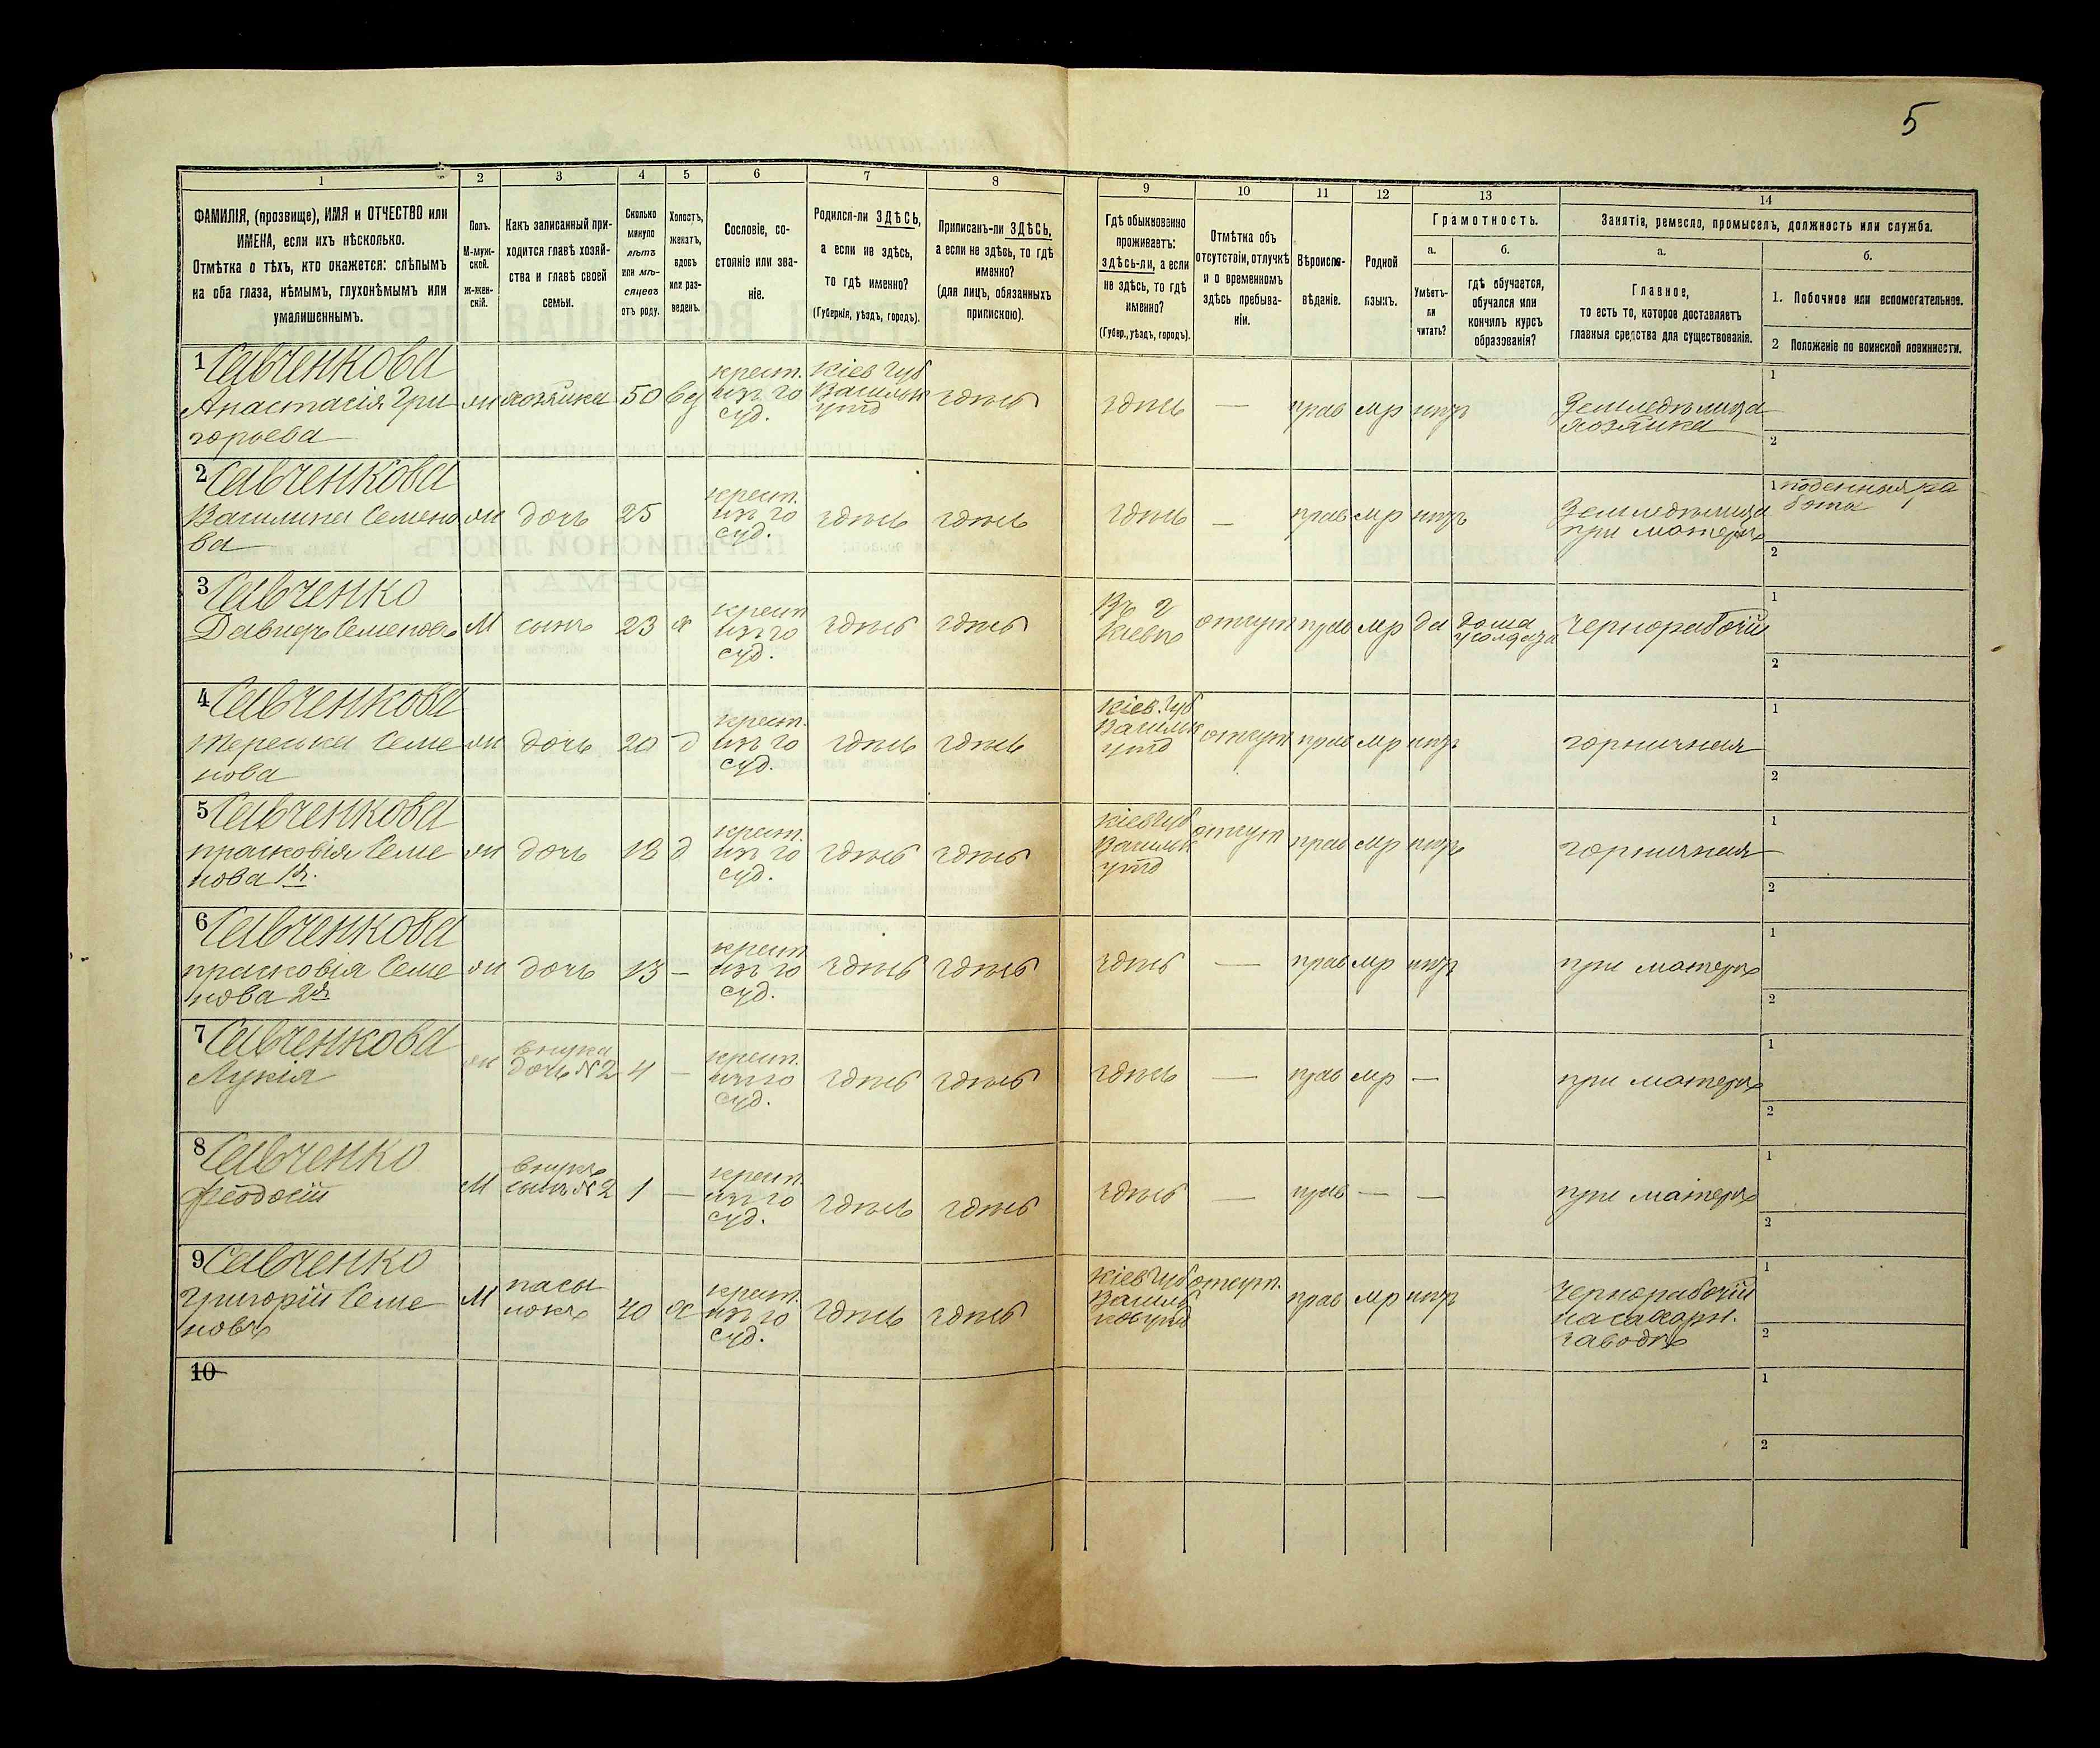 5
1
2
3
4
5
6
7
8
9
10
11
12
13
14
ФАМИЛІЯ, (прозвище), ИМЯ и ОТЧЕСТВО или
ИМЕНА, если ихъ нѣсколько.
Отмѣтка о тѣхъ, кто окажется: слѣпымъ
на оба глаза, нѣмымъ, глухонѣмымъ или
умалишеннымъ.
Полъ.
М-муж-
ской.
Ж-жен-
скій.
Какъ записанный при-
ходится главѣ хозяй-
ства и главѣ своей
семьи.
Сколько
минуло
лѣтъ
или мѣ-
сяцевъ
отъ роду.
Холостъ,
женатъ,
вдовъ
или раз-
веденъ.
Сословіе, со-
стояніе или зва-
ніе.
Родился-ли ЗДѢСЬ,
а если не здѣсь,
то гдѣ именно?
(Губернія, уѣздъ, городъ).
Приписанъ-ли ЗДѢСЬ,
а если не здѣсь, то гдѣ
именно?
(для лицъ, обязанныхъ
припискою).
Гдѣ обыкновенно
проживаетъ:
здѣсь-ли, а если
не здѣсь, то гдѣ
именно?
(Губер., уѣздъ, городъ).
Отмѣтка объ
отсутствіи, отлучкѣ
и о временномъ
здѣсь пребыва-
ніи.
Вѣроиспо-
вѣданіе.
Родной
языкъ.
Грамотность.
а.
б.
Умѣетъ-
ли
читать?
гдѣ обучается,
обучался или
кончилъ курсъ
образованія?
Занятія, ремесло, промыселъ, должность или служба.
а.
б.
Главное,
то есть то, которое доставляетъ
главныя средства для существованія.
1. Побочное или вспомогательное.
2 Положеніе по воинской повинности.
1 Савченкова
Анастасія Гри
горьева
жн
хозяйка
50
вд
крест.
изъ го
суд.
Кіев губ
Васильк
уѣзд
здѣсь
здѣсь
—
прав
мр
нѣтъ
Земледѣлица
хозяйка
1
2
2 Савченкова
Василина Семено
ва
жн
дочь
25
крест.
изъ го
суд.
здѣсь
здѣсь
здѣсь
—
прав
мр
нѣтъ
Земледѣлица
при матерѣ
1 поденная ра
бота
2
3 Савченко
Давидъ Семеновъ
М
сынъ
23
х
крест
изъ го
суд.
здѣсь
здѣсь
Въ г
Кіевѣ
отсут
прав
мр
да
дома
у солдата
Чернорабочій
1
2
4 Савченкова
Тереска Семе
нова
жн
дочь
20
д
крест.
изъ го
суд.
здѣсь
здѣсь
Кіев. губ
Васильк
уѣзд
отсут
прав
мр
нѣтъ
горничная
1
2
5 Савченкова
прасковія Семе
нова 1я.
жн
дочь
18
д
крест.
изъ го
суд.
здѣсь
здѣсь
Кіев губ
Васильк
уѣзд
отсут
прав
мр
нѣтъ
горничная
1
2
6 Савченкова
прасковія Семе
нова 2я
жн
дочь
13
—
крест
изъ го
суд.
здѣсь
здѣсь
здѣсь
—
прав
мр
нѣтъ
при матерѣ
1
2
7 Савченкова
Лукія
жн
внука
дочь №2
4
—
крест.
изъ го
суд.
здѣсь
здѣсь
здѣсь
—
прав
мр
—
при матерѣ
1
2
8 Савченко
Феодосій
М
внукъ
сынъ №2
1
—
крест.
изъ го
суд.
здѣсь
здѣсь
здѣсь
—
прав
—
—
при матерѣ
1
2
9 Савченко
Григорій Семе
новъ
М
пасы
нокъ
40
х
крест.
изъ го
суд.
здѣсь
здѣсь
Кіев губ
Василь
ков уѣзд
отсут.
прав
мр
нѣтъ
Чернорабочій
на сахарн.
заводѣ
1
2
10
1
2